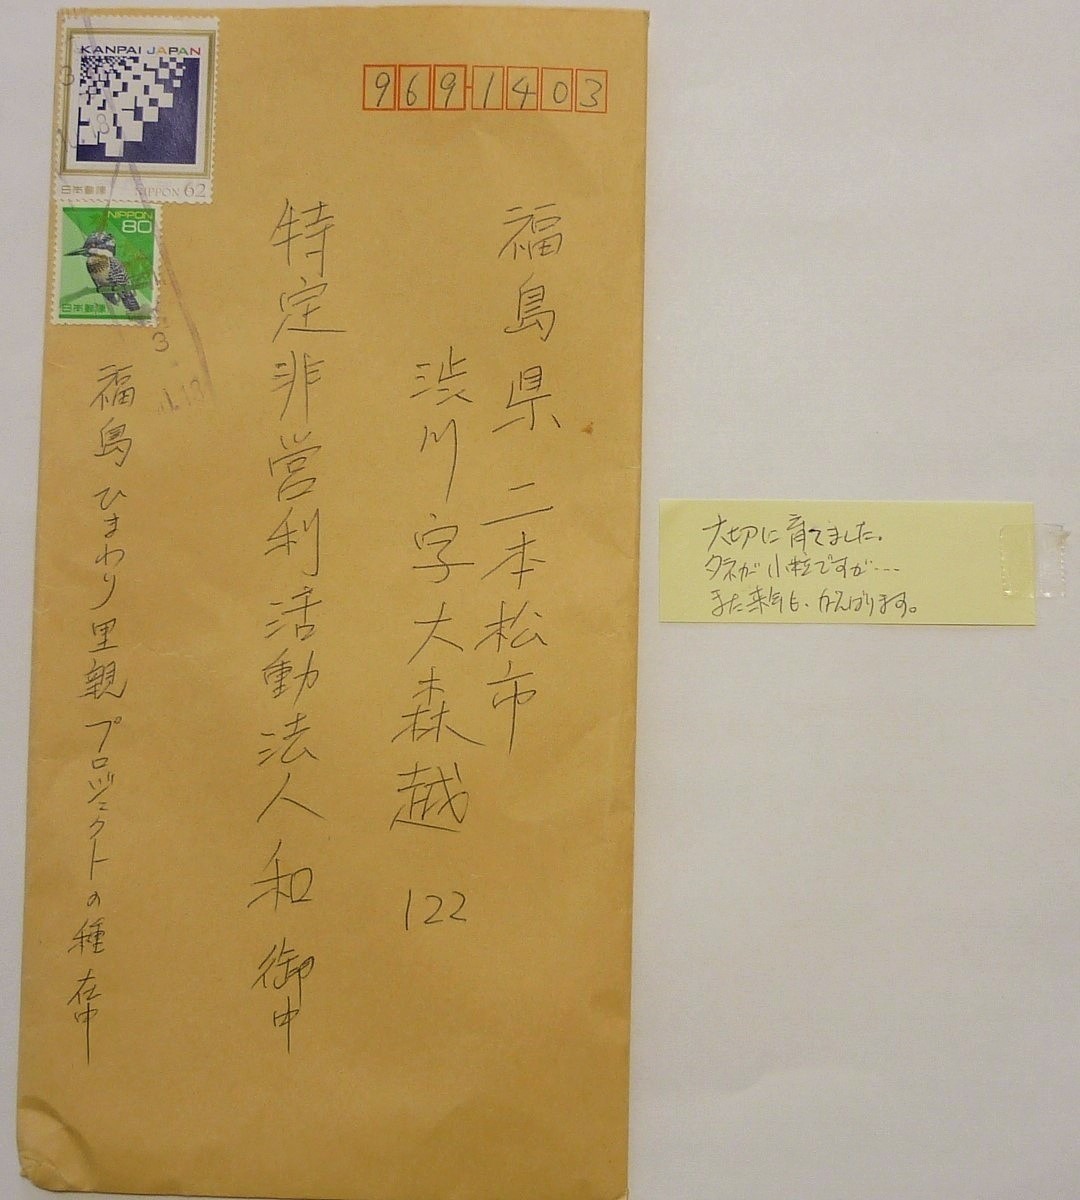 969-1403
福島県 二本松市
渋川字大森越 122
特定非営利活動法人 和 御中
福島ひまわり里親プロジェクトの種 在中
KANPAI JAPAN
日本郵便 NIPPON 62
NIPPON
80
日本郵便
大切に育てました。
タネが小粒ですが…
また来年も、がんばります。